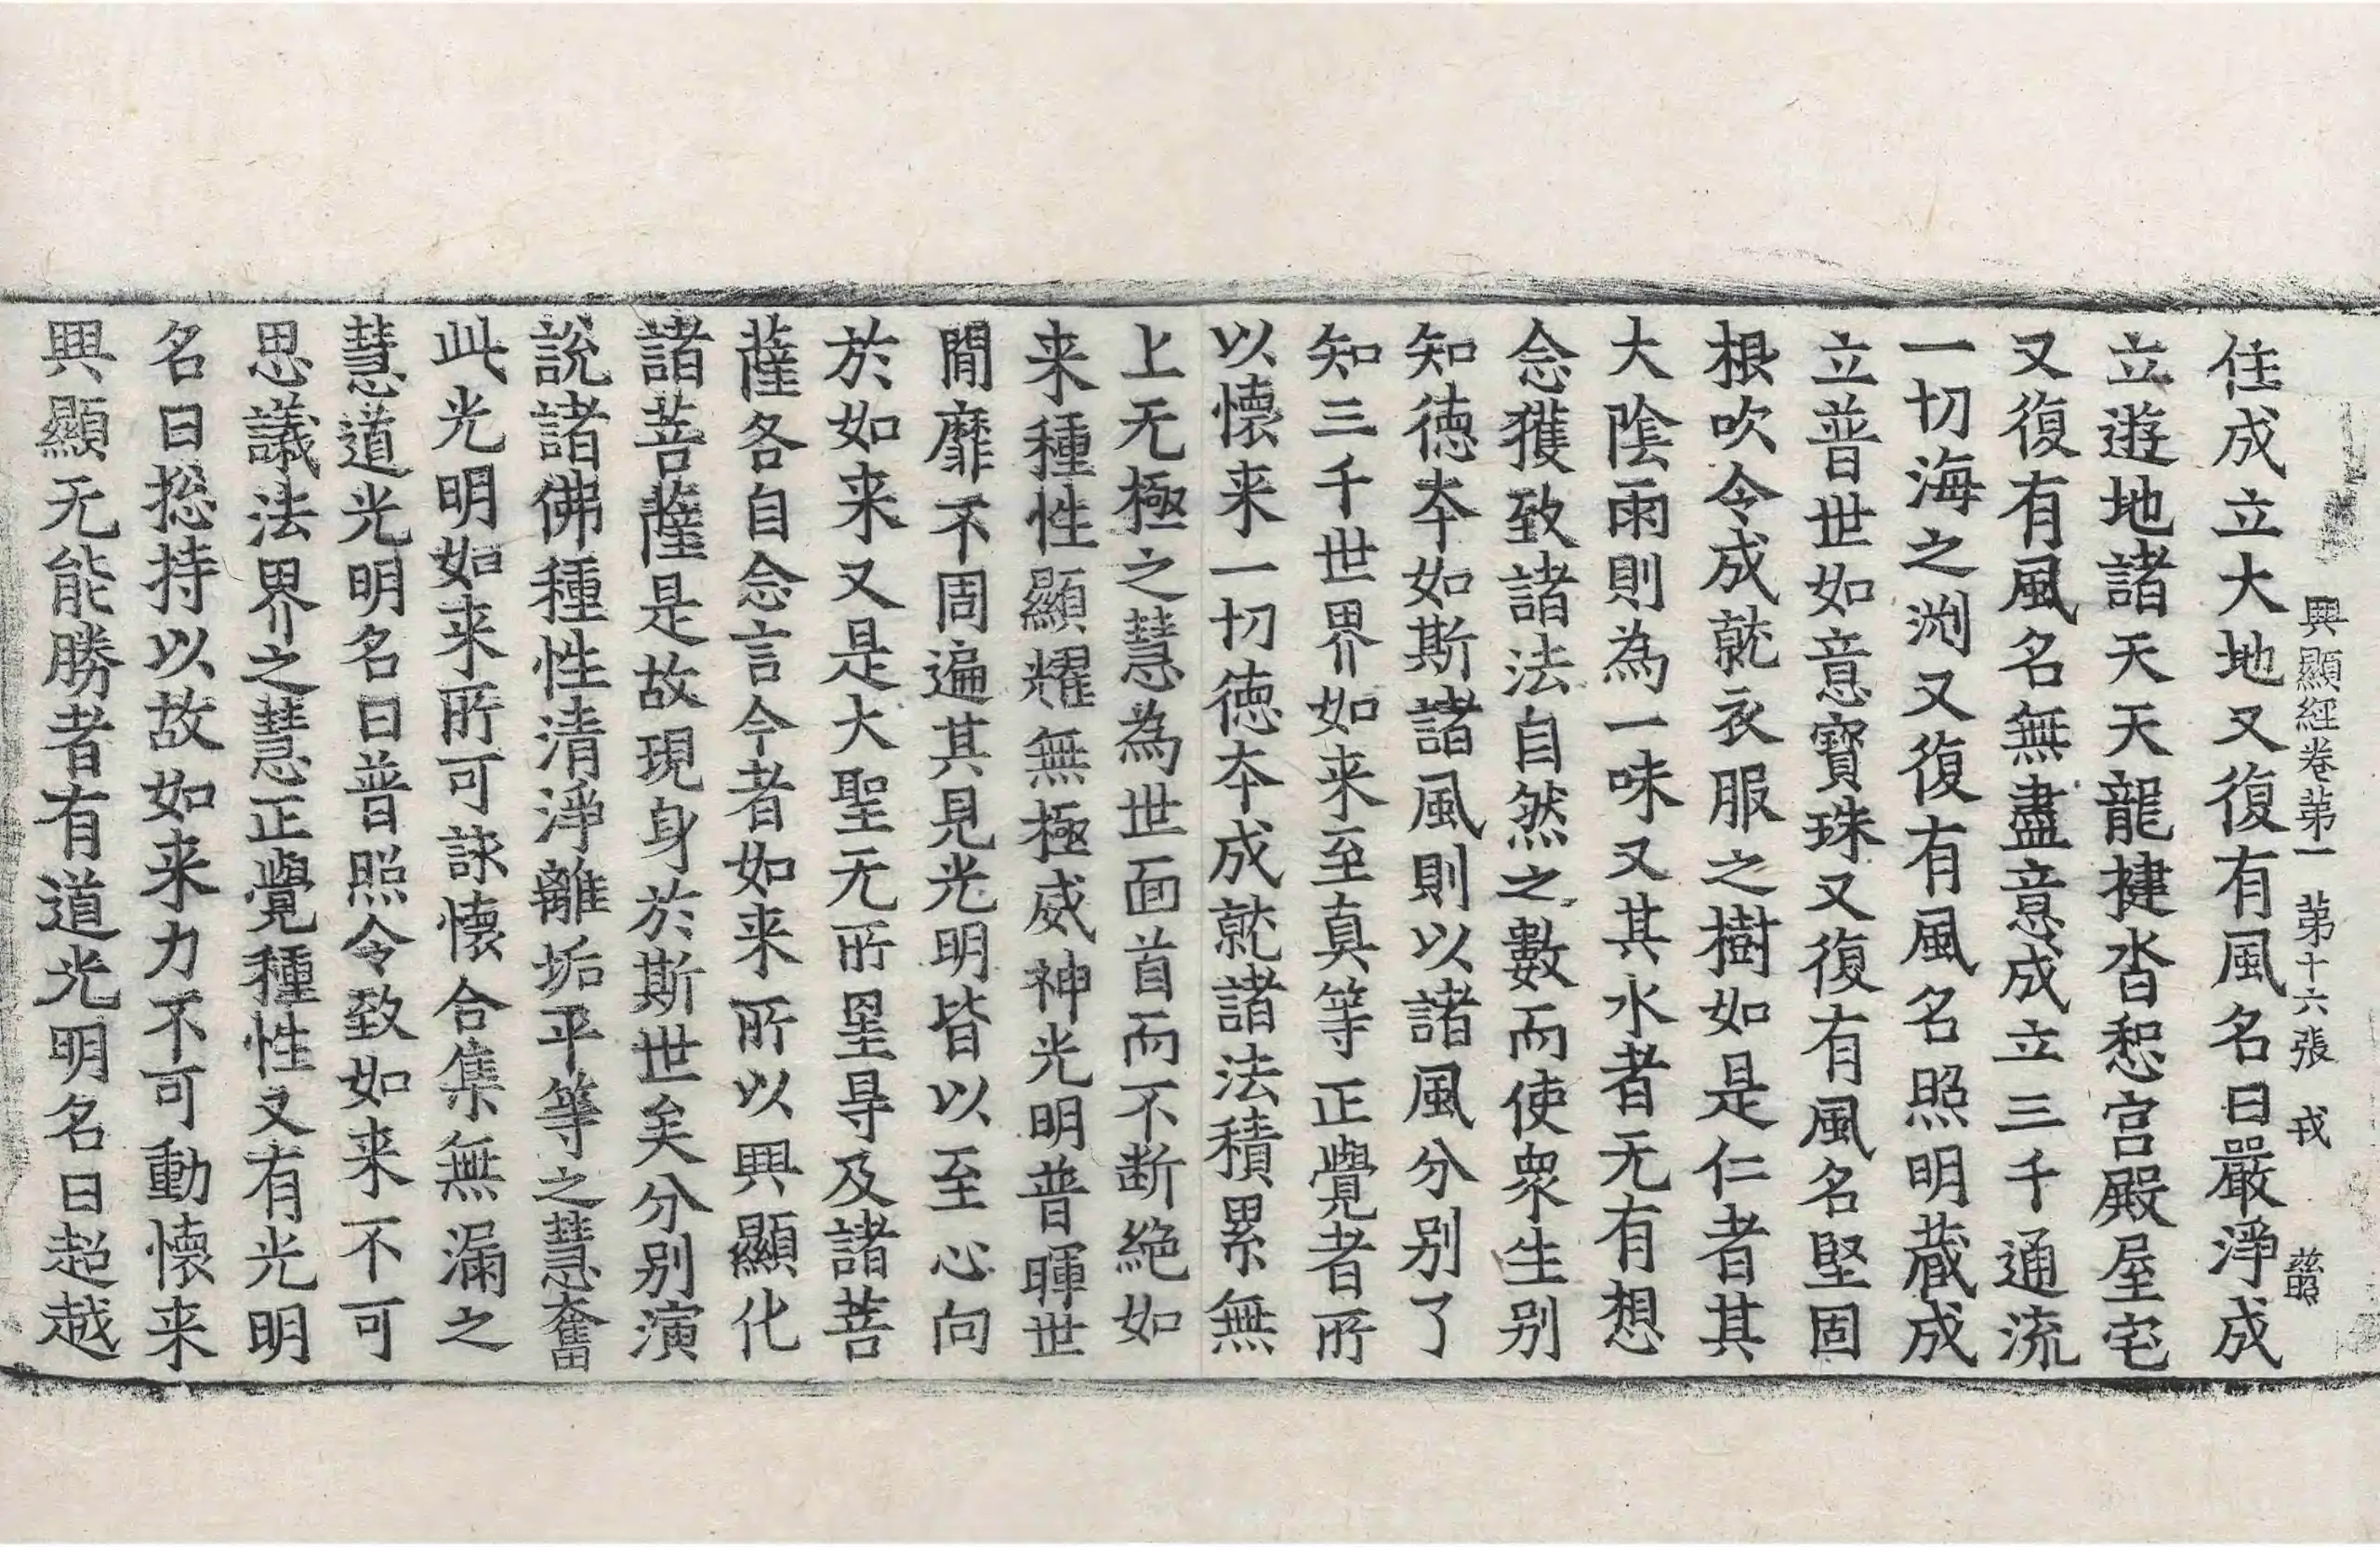 興顯經卷苐一 苐十六張 戎
住成立大地又復有風名曰嚴淨成
立遊地諸天天龍揵沓惒宫殿屋宅
又復有風名無盡意成立三千通流
一切海之渕又復有風名照明藏成
立普世如意寶珠又復有風名堅固
根吹令成就衣服之樹如是仁者其
大陰雨則為一味又其水者无有想
念獲致諸法自然之數而使衆生别
知德夲如斯諸風則以諸風分别了
知三千世界如来至真等正覺者所
以懷来一切德夲成就諸法積累無
上无極之慧為世面首而不断絶如
来種性顯耀無極威神光明普暉世
閒靡不周遍其見光明皆以至心向
於如来又是大聖无所罣㝵及諸菩
薩各自念言今者如来所以興顯化
諸菩薩是故現身於斯世矣分别演
說諸佛種性清淨離垢平等之慧奮
此光明如来所可詠懷合集無漏之
慧道光明名曰普照令致如来不可
思議法界之慧正覺種性又有光明
名曰捴持以故如来力不可動懷来
興顯无能勝者有道光明名曰超越